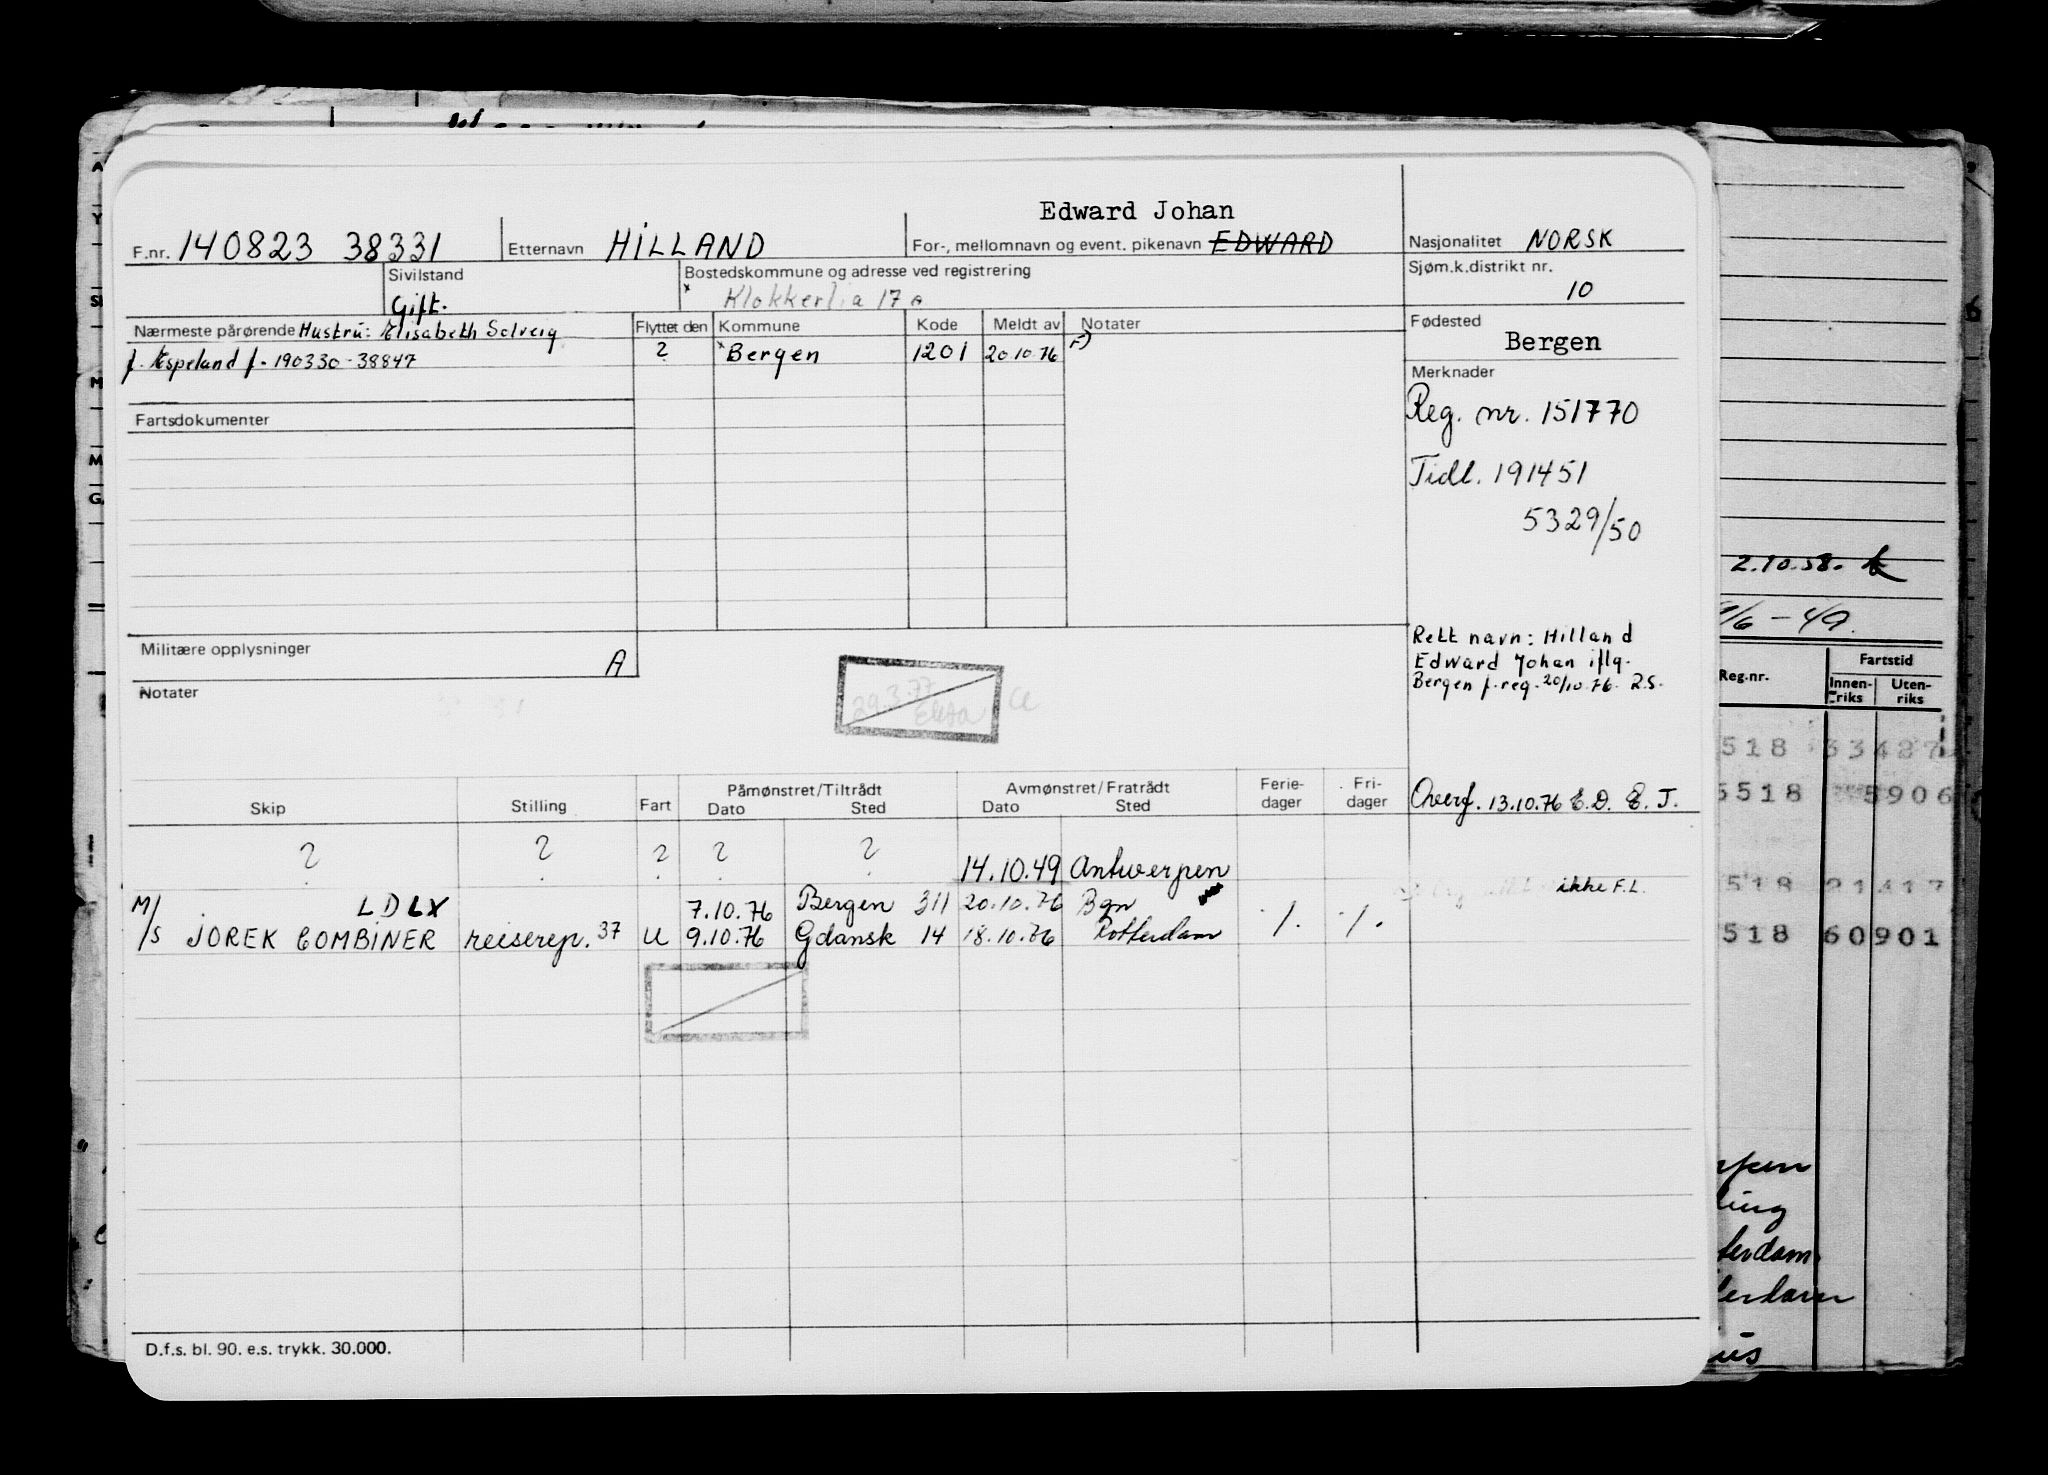 Edward Johan
F.nr. 140823 38331 Etternavn HILLAND For-, mellomnavn og event. pikenavn EDWARD Nasjonalitet NORSK
Sivilstand Gift. Bostedskommune og adresse ved registrering Sjøm.k.distrikt nr.
x Klokkerlia 17 A 10
Nærmeste pårørende Hustru: Elisabeth Solveig Flyttet den Kommune Kode Meldt av Notater Fødested
f. Espeland f. 190330-38847 ? x Bergen 1201 20.10.76 F) Bergen
Merknader
Reg. nr. 151770
Fartsdokumenter
Tidl. 191451
5329/50
2.10.58.
/6-49.
Rett navn: Hilland
Edward Johan iflg.
Bergen f.reg. 20/10.76. R.S.
Militære opplysninger A
Notater
29.3.77
Reg.nr. Fartstid
Innen-riks Uten-riks
518 33427
5518 5906
Skip Stilling Fart Påmønstret/Tiltrådt Dato Sted Avmønstret/Fratrådt Dato Sted Ferie-dager Fri-dager
Overf. 13.10.76 E.D. E.J.
? ? ? ? ? 14.10.49 Antwerpen
ikke F.L.
518 21417
M/S LDLX 7.10.76 Bergen 311 20.10.76 Bgn
JOREK COMBINER reiserep. 37 U 9.10.76 Gdansk 14 18.10.76 Rotterdam ./. ./.
518 60901
D.f.s. bl. 90. e.s. trykk. 30.000.